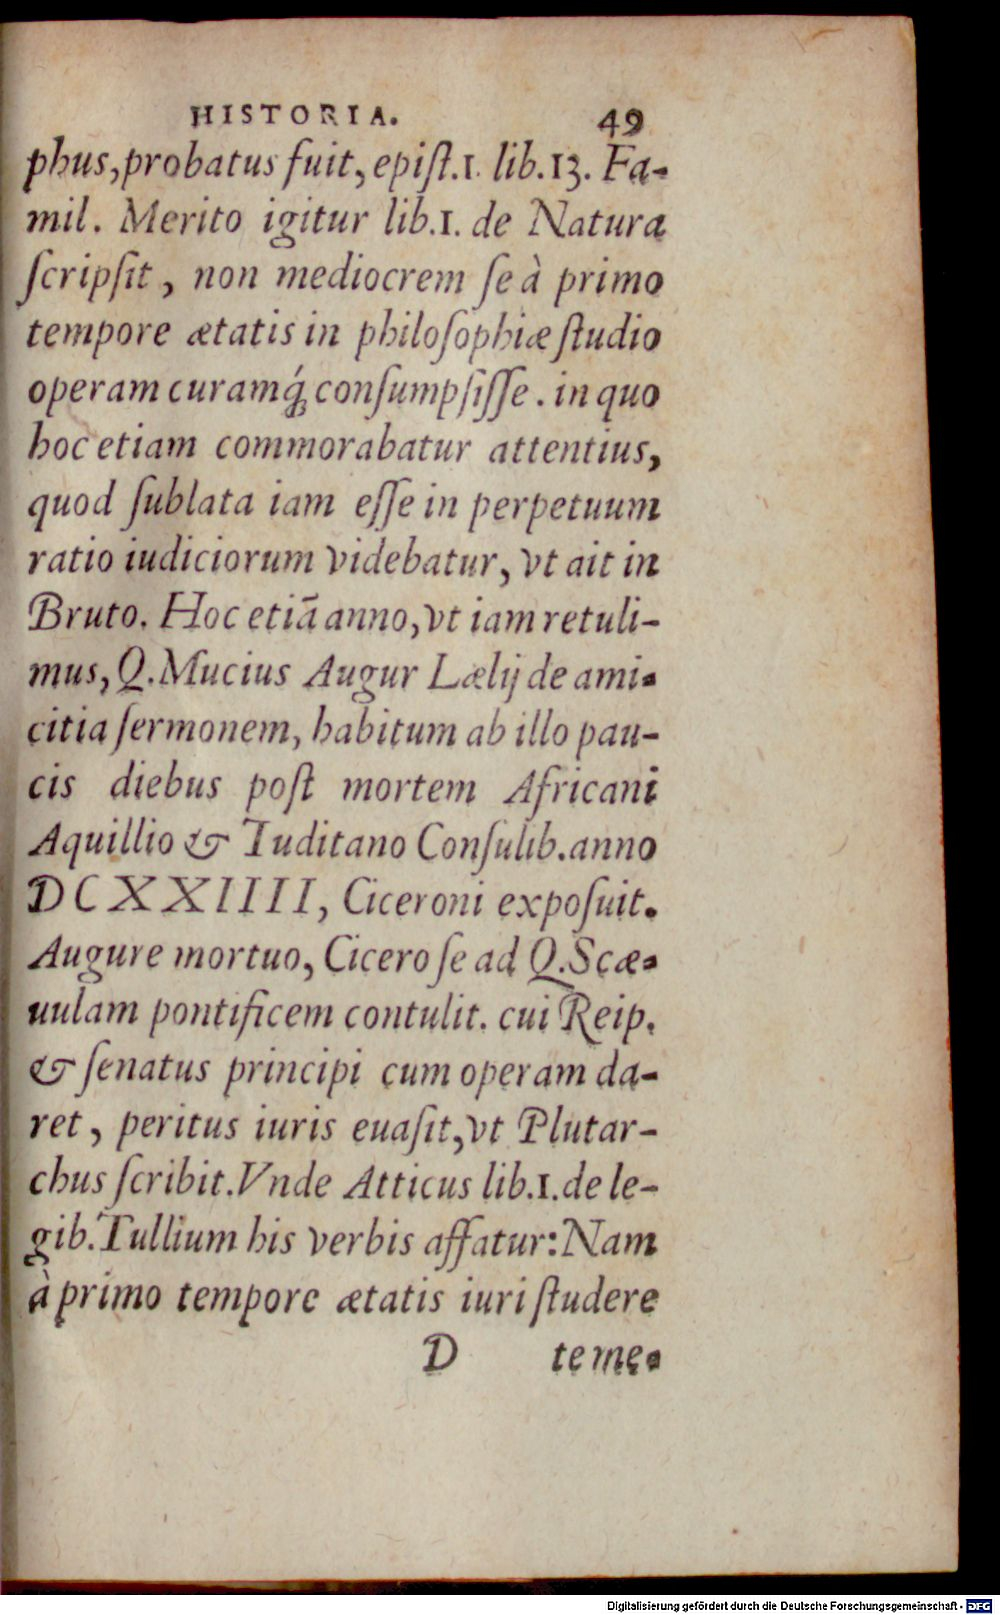 HISTORIA. 49
phus, probatus fuit, epiſt.1. lib.13. Fa-
mil. Merito igitur lib.1. de Natura
ſcripſit, non mediocrem ſe à primo
tempore ætatis in philoſophiæ ſtudio
operam curamq́; conſumpſiſſe. in quo
hoc etiam commorabatur attentius,
quod ſublata iam eſſe in perpetuum
ratio iudiciorum videbatur, vt ait in
Bruto. Hoc etiã anno, vt iam retuli-
mus, Q. Mucius Augur Lælij de ami-
citia ſermonem, habitum ab illo pau-
cis diebus poſt mortem Africani
Aquillio & Tuditano Conſulib. anno
DCXXIIII, Ciceroni expoſuit.
Augure mortuo, Cicero ſe ad Q. Scæ-
uulam pontificem contulit. cui Reip.
& ſenatus principi cum operam da-
ret, peritus iuris euaſit, vt Plutar-
chus ſcribit. Vnde Atticus lib.1. de le-
gib. Tullium his verbis affatur: Nam
à primo tempore ætatis iuri ſtudere
D teme-
Digitalisierung gefördert durch die Deutsche Forschungsgemeinschaft - DFG